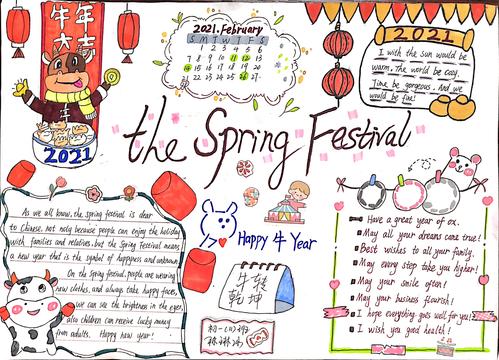 牛年
大吉
2021
2021.February
S M T W T F S
1 2 3 4 5 6
7 8 9 10 11 12 13
14 15 16 17 18 19 20
21 22 23 24 25 26 27
28
2021
I with the sun would be
warm, the world be cosy,
Time be gorgeous, And we
would be fine!
the Spring Festival
Happy 牛 Year
牛转
乾坤
As we all know, the spring festival is dear
to Chinese, not noly because people can enjoy the holiday
with families and relatives, but the Spring Festival means
a new year that is the symbol of happyness and unknown.
On the spring festival, people are wearing
new clothes, and always take happy faces,
we can see the brightness in the eyes,
also children can receive lucky money
from adults. Happy new year!
Have a great year of ox.
May all your dreams come true!
Best wishes to all your family.
May every step take you higher!
May your smile often!
May your business flourish!
I hope everything goes well for you!
I wish you good health!
初一(1)班